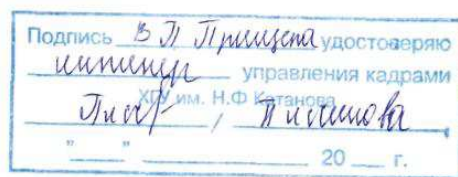 Подпись В П Прищепа удостоверяю
управления кадрами
ХГУ им. Н.Ф Катанова
/
" " 20 г.